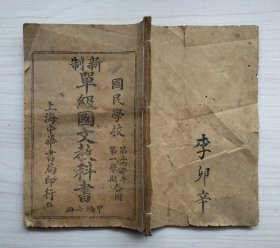 新制
國民學校
第一學期
合用
單級國文教科書
甲編
冊
上海中華書局印行
李卯辛